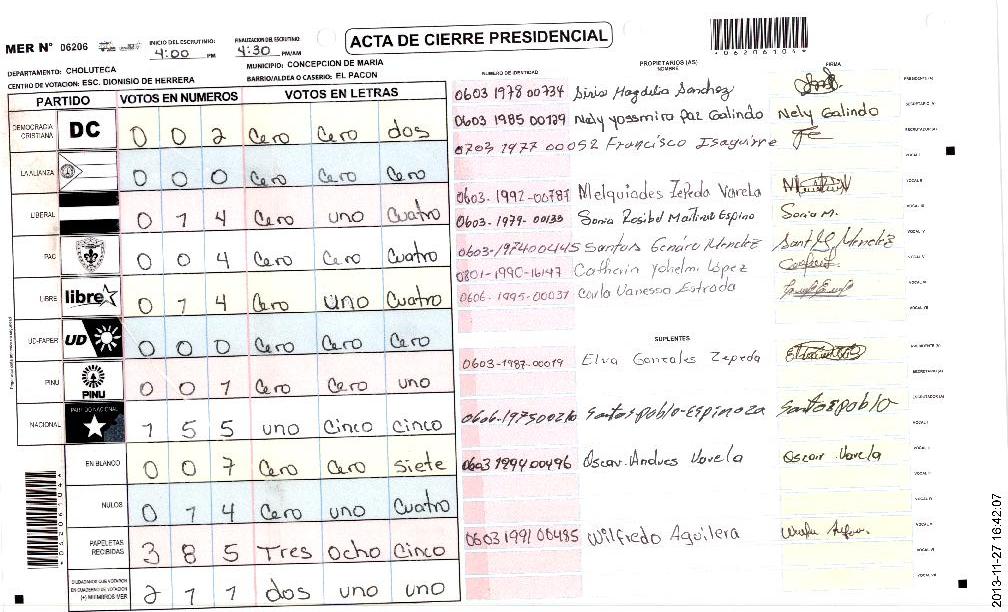 MER N° 06206
INICIO DEL ESCRUTINIO: 4:00 PM
FINALIZACION DEL ESCRUTINIO: 4:30 PM/AM
ACTA DE CIERRE PRESIDENCIAL
DEPARTAMENTO: CHOLUTECA
MUNICIPIO: CONCEPCION DE MARIA
CENTRO DE VOTACION: ESC. DIONISIO DE HERRERA
BARRIO/ALDEA O CASERIO: EL PACON
PARTIDO VOTOS EN NUMEROS VOTOS EN LETRAS
DEMOCRACIA CRISTIANA DC 0 0 2 Cero Cero dos
LA ALIANZA 0 0 0 Cero Cero Cero
LIBERAL 0 1 4 Cero uno Cuatro
PAC 0 0 4 Cero Cero Cuatro
LIBRE libre 0 1 4 Cero uno Cuatro
UD-FAPER UD 0 0 0 Cero Cero Cero
PINU PINU 0 0 1 Cero Cero uno
NACIONAL PARTIDO NACIONAL 1 5 5 uno Cinco Cinco
EN BLANCO 0 0 7 Cero Cero Siete
NULOS 0 1 4 Cero uno Cuatro
PAPELETAS RECIBIDAS 3 8 5 Tres Ocho Cinco
CIUDADANOS QUE VOTARON EN CUADERNO DE VOTACION (+) MIEMBROS MER 2 1 1 dos uno uno
NUMERO DE IDENTIDAD
PROPIETARIOS (AS)
NOMBRE
FIRMA
0603 1978 00734 Siria Magdalia Sanchez
0603 1985 00129 Nely yossmira Paz Galindo Nely Galindo
0703 1977 00052 Francisco Isaguirre
0603-1992-00787 Melquiades Zepeda Varela
0603-1979-00133 Sonia Rosibel Martinez Espino Sonia M.
0603-1974 00445 Santos Genaro Mendez
0801-1990-16147 Catherin Yohelmi López
0606-1995-00037 Carla Vanessa Estrada
SUPLENTES
0603-1987-00019 Elva Gonzales Zepeda
0606-1975 00210 Santos pablo-Espinoza Santos pablo
0603 1994 00496 Oscar Andres Varela Oscar Varela
0603 1991 00485 Wilfredo Aguilera
2013-11-27 16:42:07